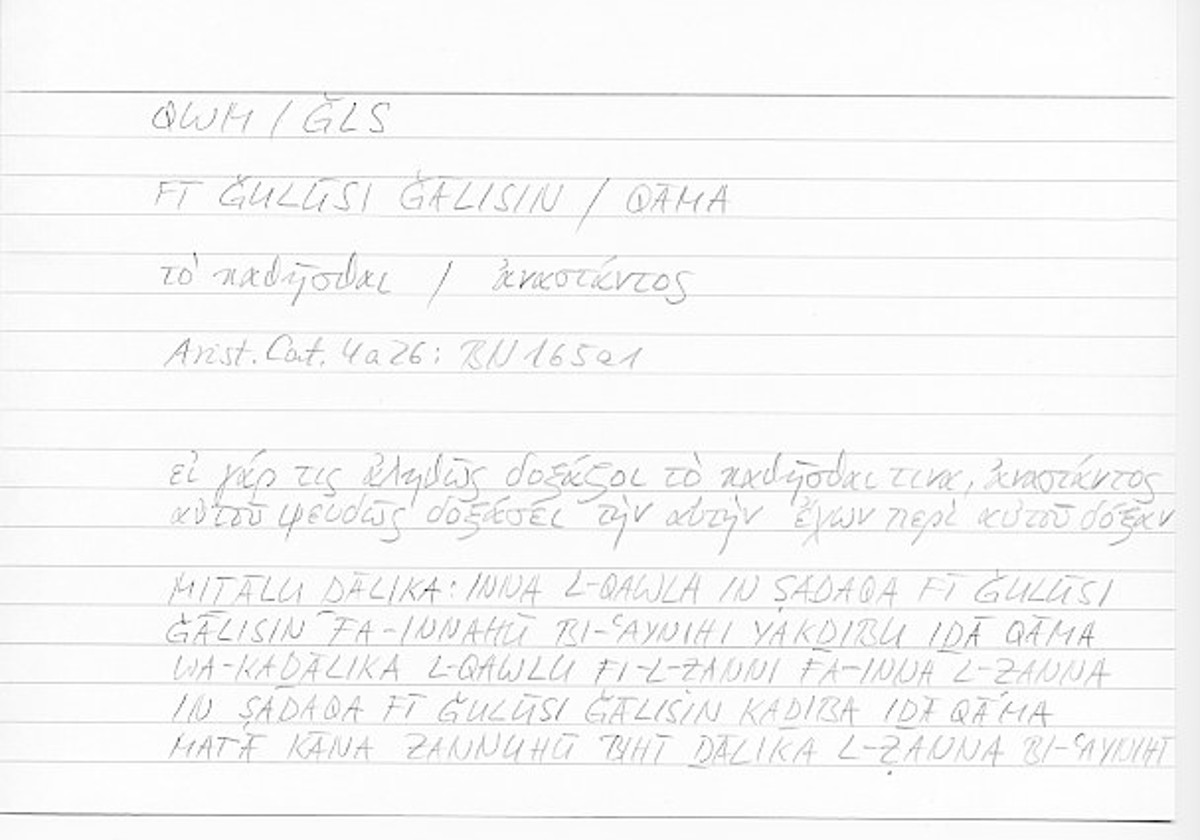 QWM / ǦLS
FĪ ǦULŪSI ǦĀLISIN / QĀMA
τὸ καθῆσθαι / ἀναστάντος
Arist. Cat. 4a26: BN 165a1
εἰ γάρ τις ἀληθῶς δοξάζοι τὸ καθῆσθαι τινα, ἀναστάντος
αὐτοῦ ψευδῶς δοξάσει τὴν αὐτὴν ἔχων περὶ αὐτοῦ δόξαν
MIṮĀLU ḎĀLIKA: INNA L-QAWLA IN ṢADAQA FĪ ǦULŪSI
ǦĀLISIN FA-INNAHŪ BI-ʿAYNIHI YAKḎIBU IḎĀ QĀMA
WA-KAḎĀLIKA L-QAWLU FI-L-ẒANNI FA-INNA L-ẒANNA
IN ṢADAQA FĪ ǦULŪSI ǦĀLISIN KAḎIBA IḎĀ QĀMA
MATĀ KĀNA ẒANNUHŪ BIHĪ ḎĀLIKA L-ẒANNA BI-ʿAYNIHĪ